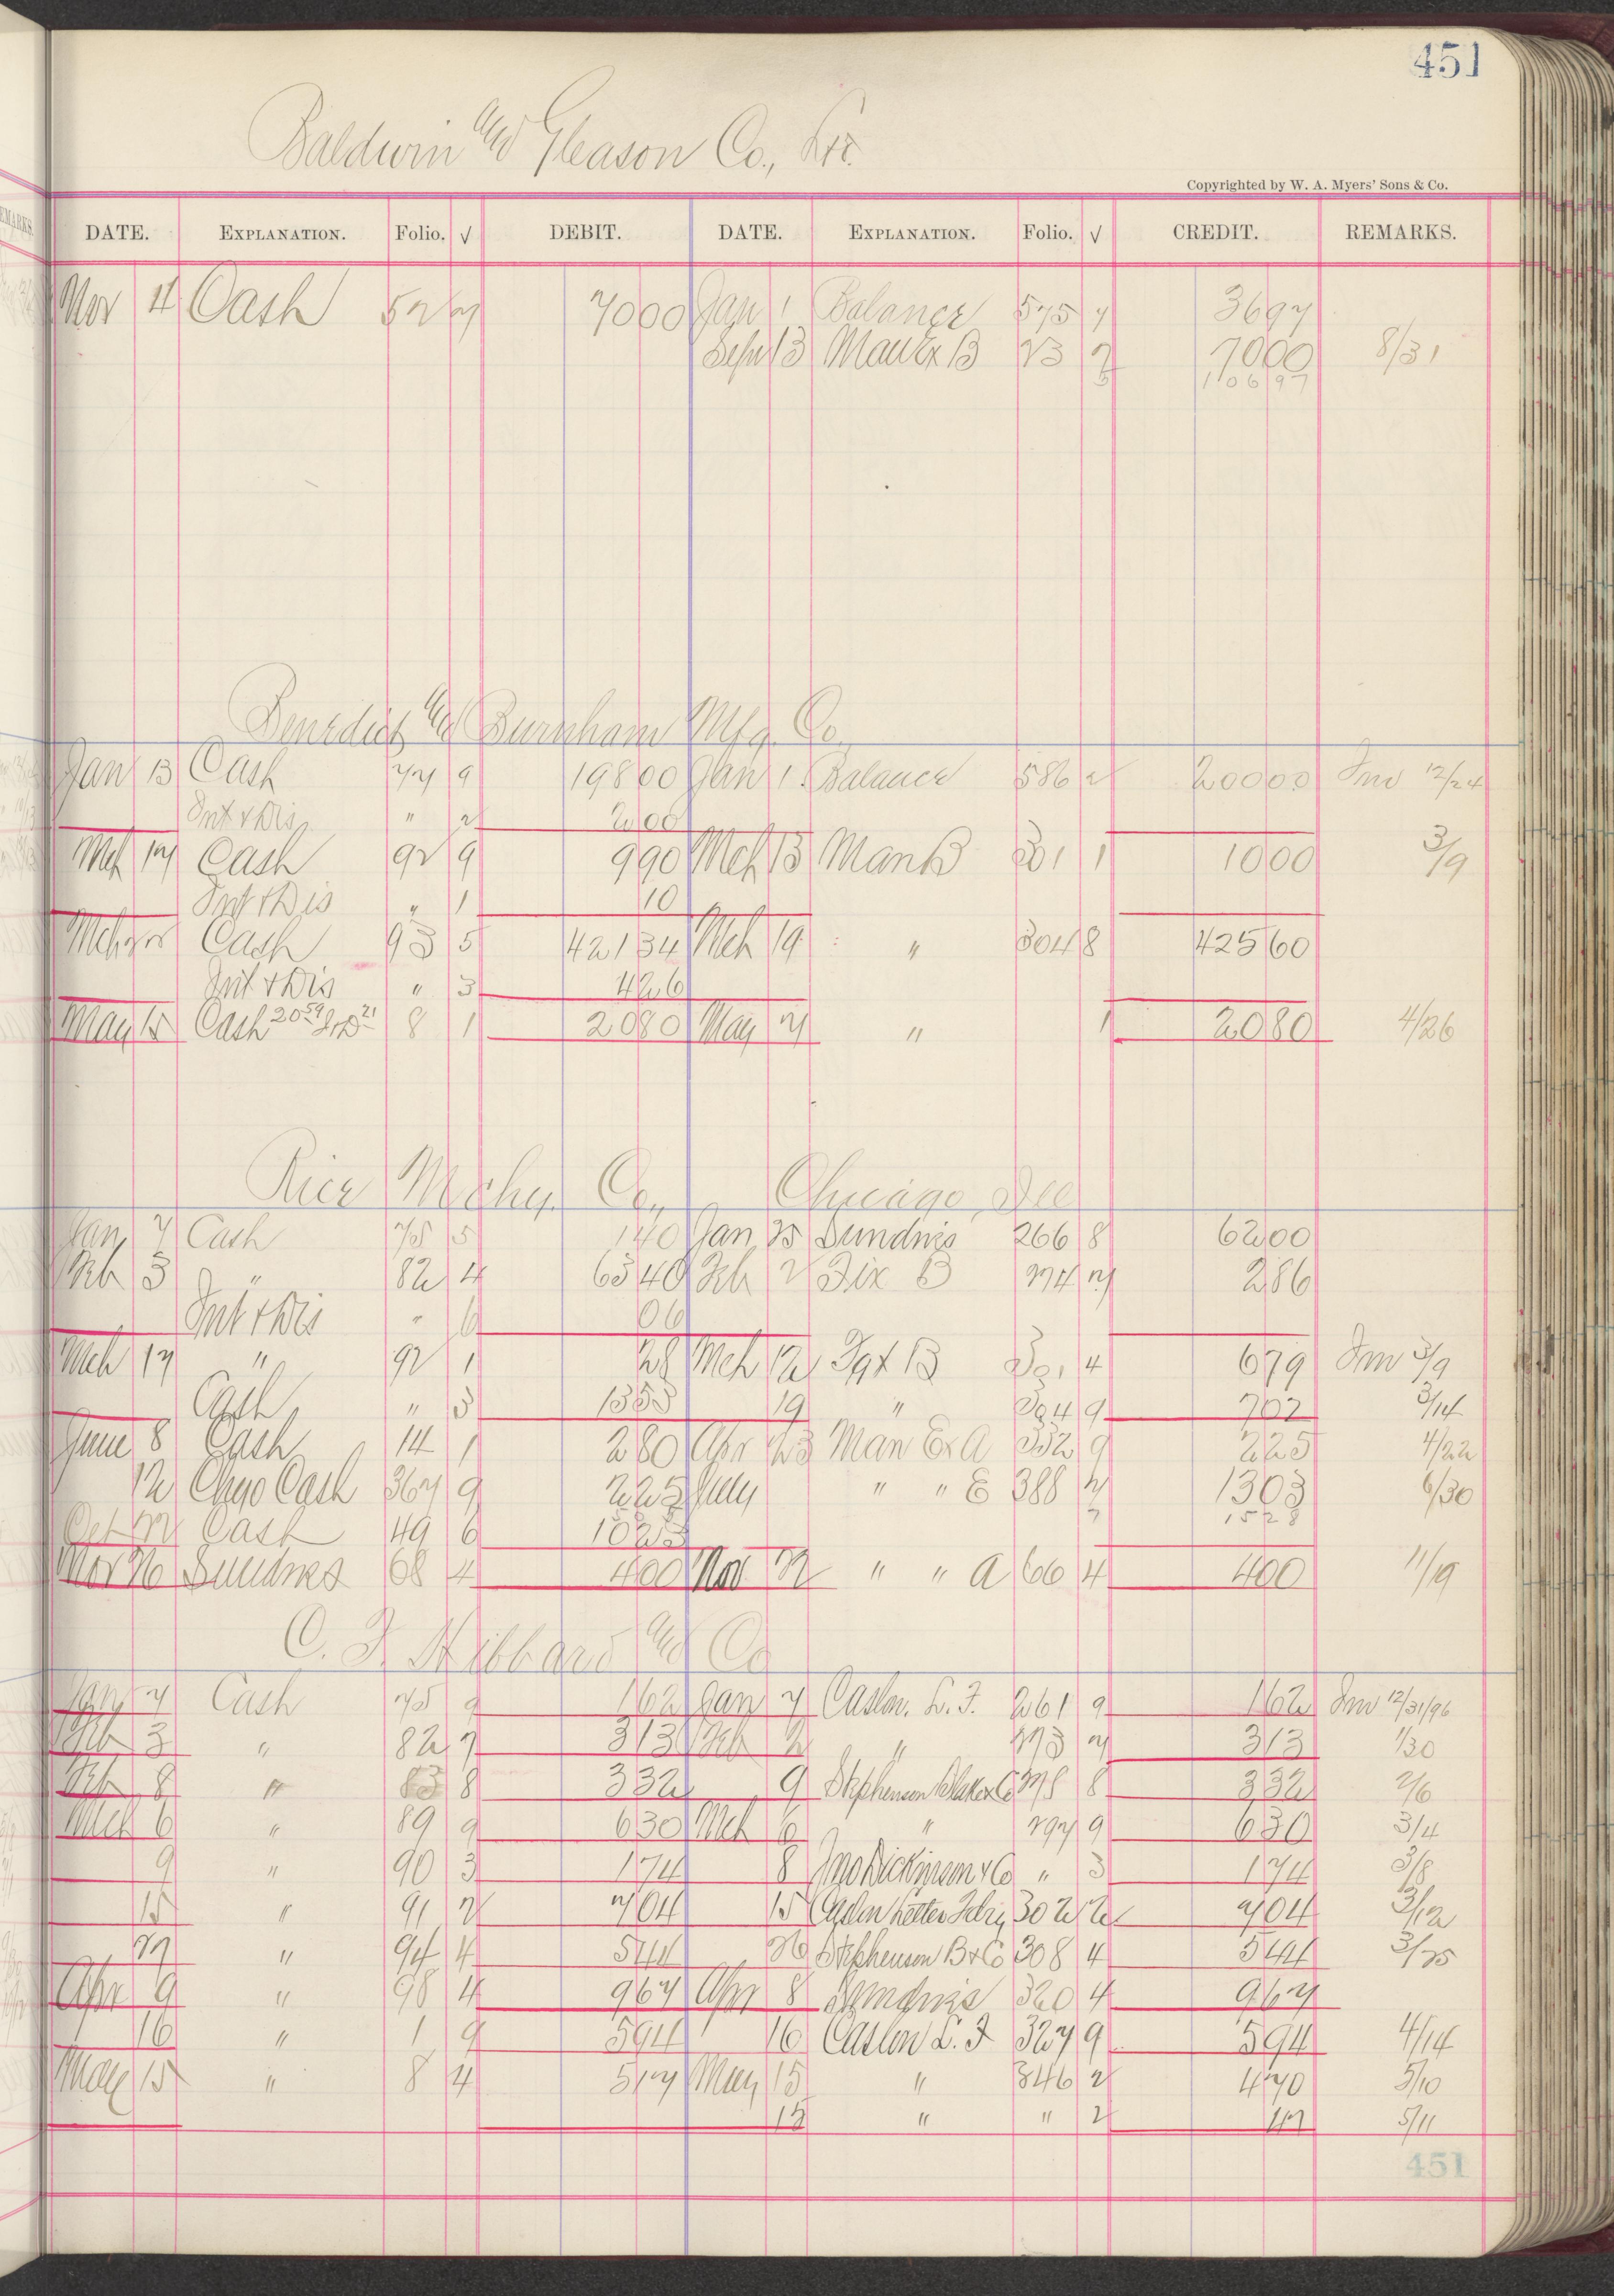 451
Baldwin & Gleason Co., Ltd.
Copyrighted by W. A. Myers' Sons & Co.
DATE. EXPLANATION. Folio. √ DEBIT. DATE. EXPLANATION. Folio. √ CREDIT. REMARKS.
Nov 4 Cash 52 7 7000 Jan 1 Balance 575 7 3697
Sep 13 Man Ex B 23 7 7000 8/31
10697
Benedict & Burnham Mfg. Co.
Jan 13 Cash 77 9 19800 Jan 1 Balance 586 2 20000 Inv 12/24
Int & Dis " 2 200
Mch 17 Cash 92 9 990 Mch 13 Man B 301 1 1000 3/9
Int & Dis " 1 10
Mch Cash 93 5 42134 Mch 19 " 304 8 42560
Int & Dis " 3 426
May 15 Cash 20 59 21 8 1 2080 May 7 " 1 2080 4/26
Rice Mchy. Co., Chicago, Ill
Jan 7 Cash 75 5 140 Jan 25 Sundries 266 8 6200
Feb 3 " 82 4 6340 Feb 2 Fix B 274 7 286
Int & Dis " 6 06
Mch 17 " 92 1 28 Mch 12 B 301 4 679 Inv 3/9
Cash " 3 1353 19 " 304 9 702 3/14
June 8 Cash 14 1 280 Apr 23 Man Ex A 332 9 225 4/22
12 Chgo Cash 367 9 225 July " " E 388 7 1303 6/30
1528
Oct Cash 49 6 1023
Nov 26 Sundries 68 4 400 Nov 22 " " A 66 4 400 11/19
C. F. Hibbard & Co
Jan 7 Cash 75 9 162 Jan 7 Caslon. L. F. 261 9 162 Inv 12/31/96
Feb 3 " 82 7 313 Feb 2 " 273 7 313 1/30
Feb 8 " 83 8 332 9 Stephenson Blake & Co 278 8 332 2/6
Mch 6 " 89 9 630 Mch 6 " 297 9 630 3/4
9 " 90 3 174 8 Jno Dickinson & Co " 3 174 3/8
15 " 91 2 704 15 Caslon Letter Fdry 302 2 704 3/12
27 " 94 4 544 26 Stephenson B & Co 308 4 544 3/25
Apr 9 " 98 4 967 Apr 8 Sundries 320 4 967
16 " 1 9 594 16 Caslon L. F 327 9 594 4/14
May 15 " 8 4 517 May 15 " 346 2 470 5/10
15 " " 2 47 5/11
451